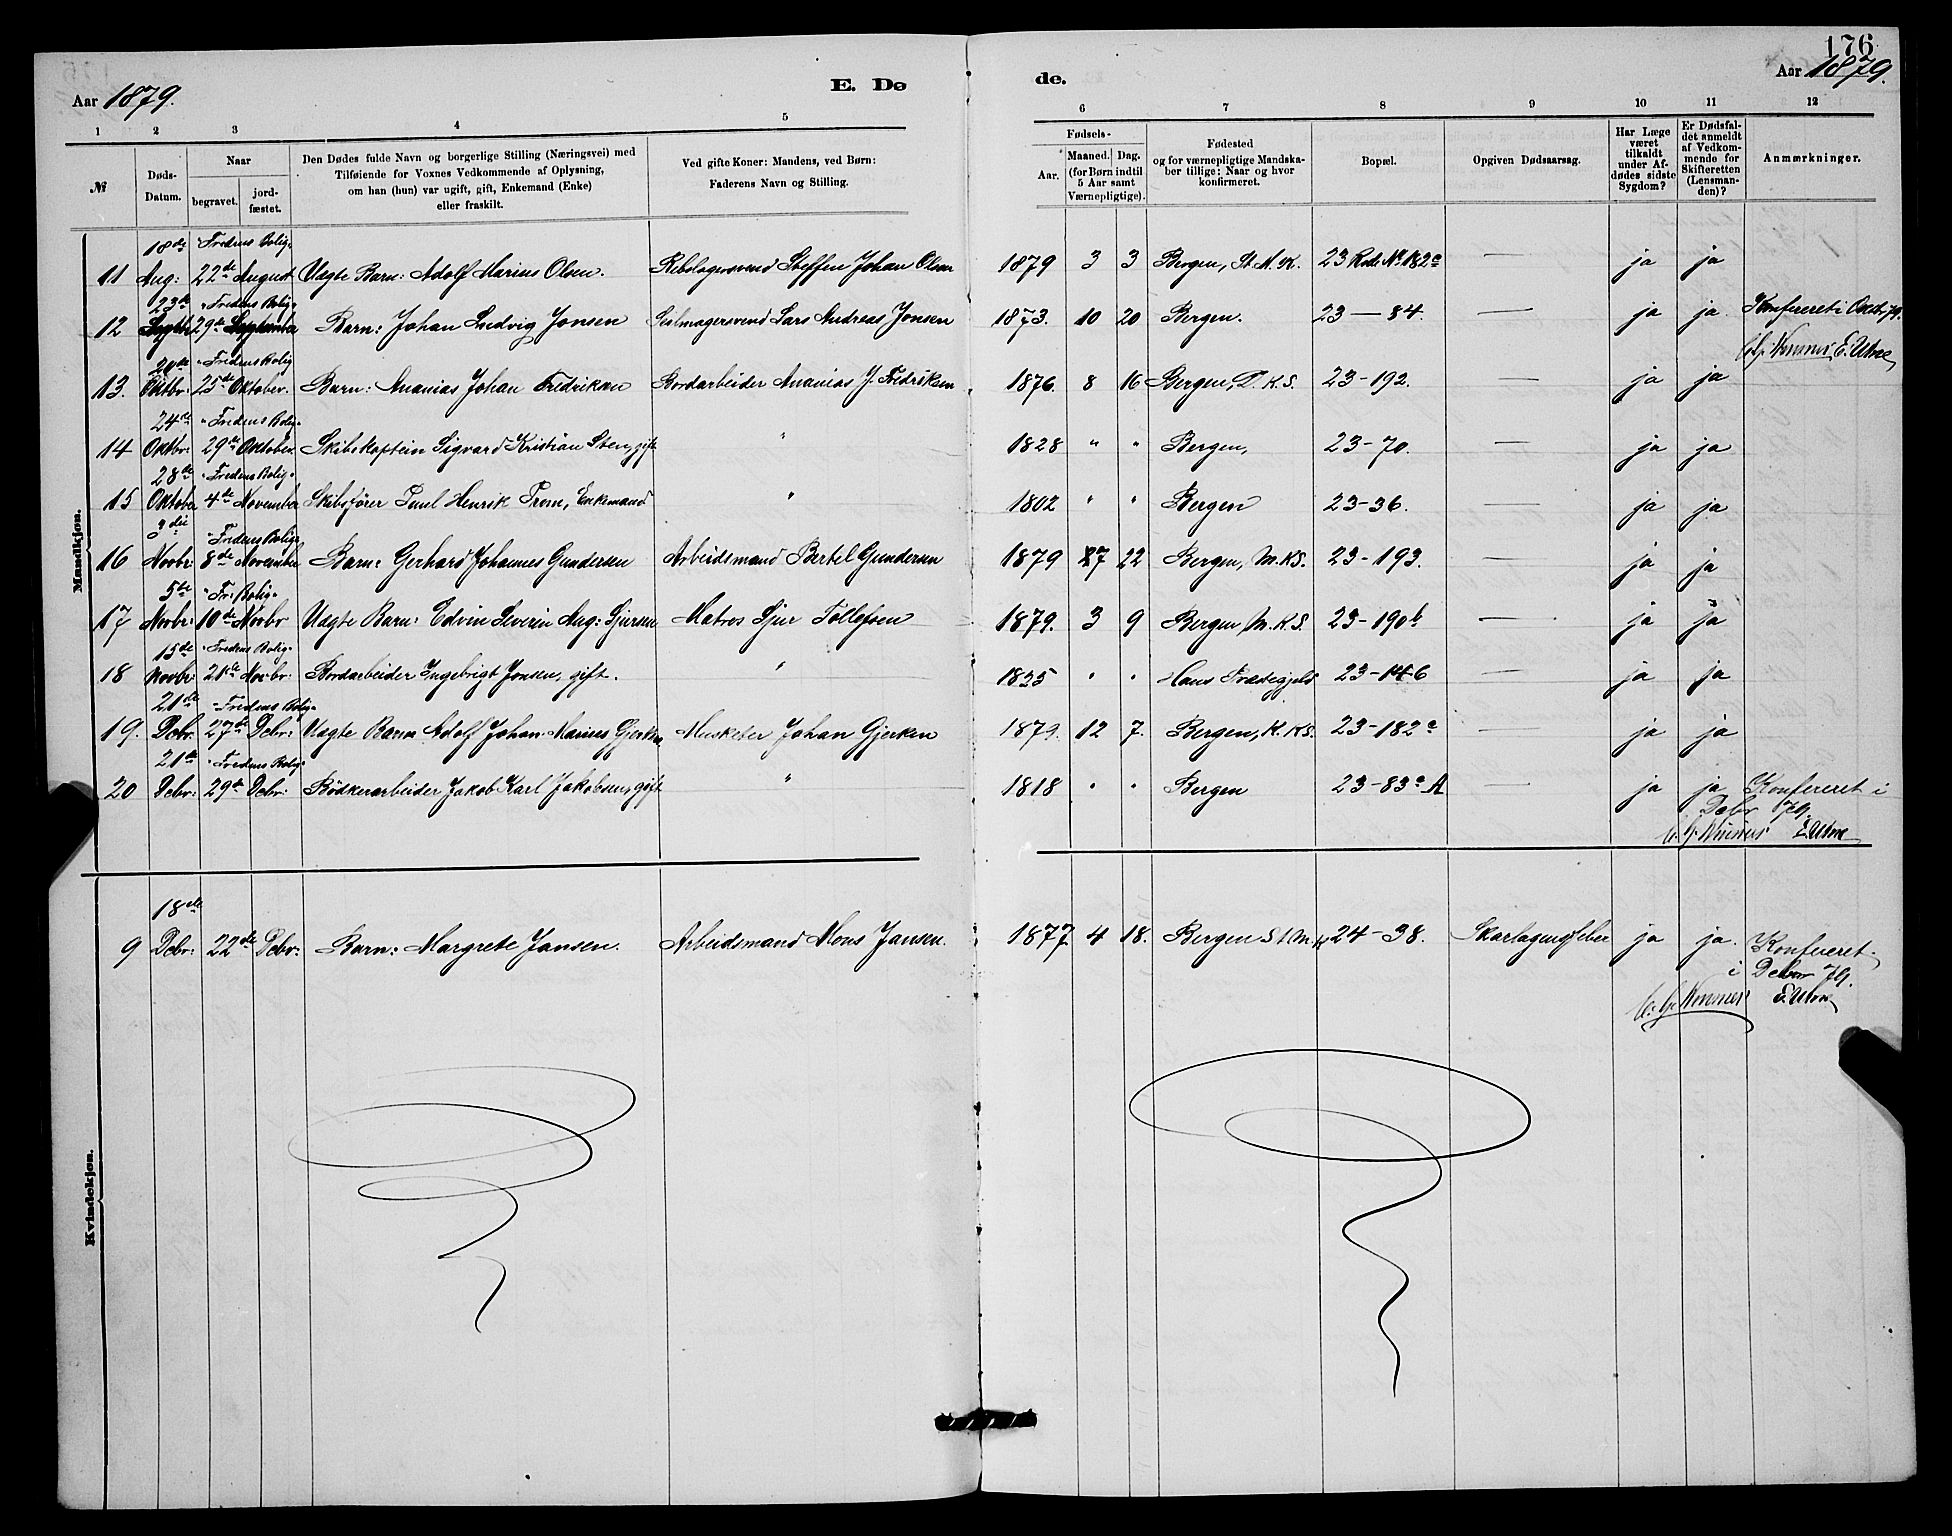 176
Aar 1879.
E. Dø
de.
Aar 1879.
1 2 3 4 5 6 7 8 9 10 11 12
№
Døds-Datum.
Naar
begravet.
jord-fæstet.
Den Dødes fulde Navn og borgerlige Stilling (Næringsvei) med
Tilføiende for Voxnes Vedkommende af Oplysning,
om han (hun) var ugift, gift, Enkemand (Enke)
eller fraskilt.
Ved gifte Koner: Mandens, ved Børn:
Faderens Navn og Stilling.
Fødsels-
Aar.
Maaned. Dag.
(for Børn indtil
5 Aar samt
Værnepligtige).
Fødested
og for værnepligtige Mandska-
ber tillige: Naar og hvor
konfirmeret.
Bopæl.
Opgiven Dødsaarsag.
Har Læge
været
tilkaldt
under Af-
dødes sidste
Sygdom?
Er Dødsfal-
det anmeldt
af Vedkom-
mende for
Skifteretten
(Lensman-
den)?
Anmærkninger.
Mandkjøn.
18de "Fredens Bolig"
11 Aug: 22de August Uægte Barn: Adolf Marius Olsen. Rebslagersvend Steffen Johan Olsen 1879 3 3 Bergen, St. M. K. 23 Rode No 182a — ja ja
23de "Fredens Bolig"
12 Septbr 29de September Barn: Johan Ludvig Jonsen Seilmagersvend Lars Andreas Jonsen 1873. 10 20 Bergen. 23 — 84. — ja ja. Konfereret i Oktb. 79.
E. Utne
20de "Fredens Bolig"
13. Oktbr: 25de Oktober. Barn: Ananias Johan Fredriksen Bordarbeider Ananias J. Fredriksen 1876. 8 16 Bergen, D. K. S. 23-192. — ja ja
24de "Fredens Bolig"
14 Oktbr: 29de Oktober. Skibskaptein Sigvard Kristian Sten, gift " 1828 " " Bergen, 23-70. — ja ja
28de "Fredens Bolig"
15 Oktober 4de November Skibsfører Poul Henrik From, Enkemand " 1802 " " Bergen 23-36. — ja ja
3die "Fredens Bolig"
16 Novbr: 8de November Barn: Gerhard Johannes Gundersen Arbeidsmand Bertel Gundersen 1879 7 22 Bergen, M. K. S. 23-193. — ja ja
5te "Fr: Bolig"
17 Novbr: 10de Novbr Uægte Barn: Edvin Severin Aug: Sjursen Matros Sjur Tollefsen 1879. 3 9 Bergen, M. K. S. 23-190b — ja ja
15de "Fredens Bolig"
18 Novbr: 21de Novbr: Bordarbeider Ingebrigt Jonsen, gift. " 1825 " " Hans Præstegjeld 23-146 — ja ja
21de "Fredens Bolig"
19. Debr. 27de Debr: Uægte Barn Adolf Johan Marius Gjerken Musketer Johan Gjerken 1879. 12 7. Bergen, K. K. S. 23-182a — ja ja
21de "Fredens Bolig"
20 Debr: 29de Debr: Bødkerarbeider Jakob Karl Jakobsen, gift " 1818 " " Bergen 23-83a A — ja ja Konfereret i
Debr 79.
E. Utne
Kvindekjøn.
18de
9 Debr: 22de Debr: Barn: Margrete Jansen. Arbeidsmand Mons Jansen. 1877 4 18. Bergen St. M. K. 24-38. Skarlagensfeber ja ja. Konfereret
i Debr 79.
E. Utne